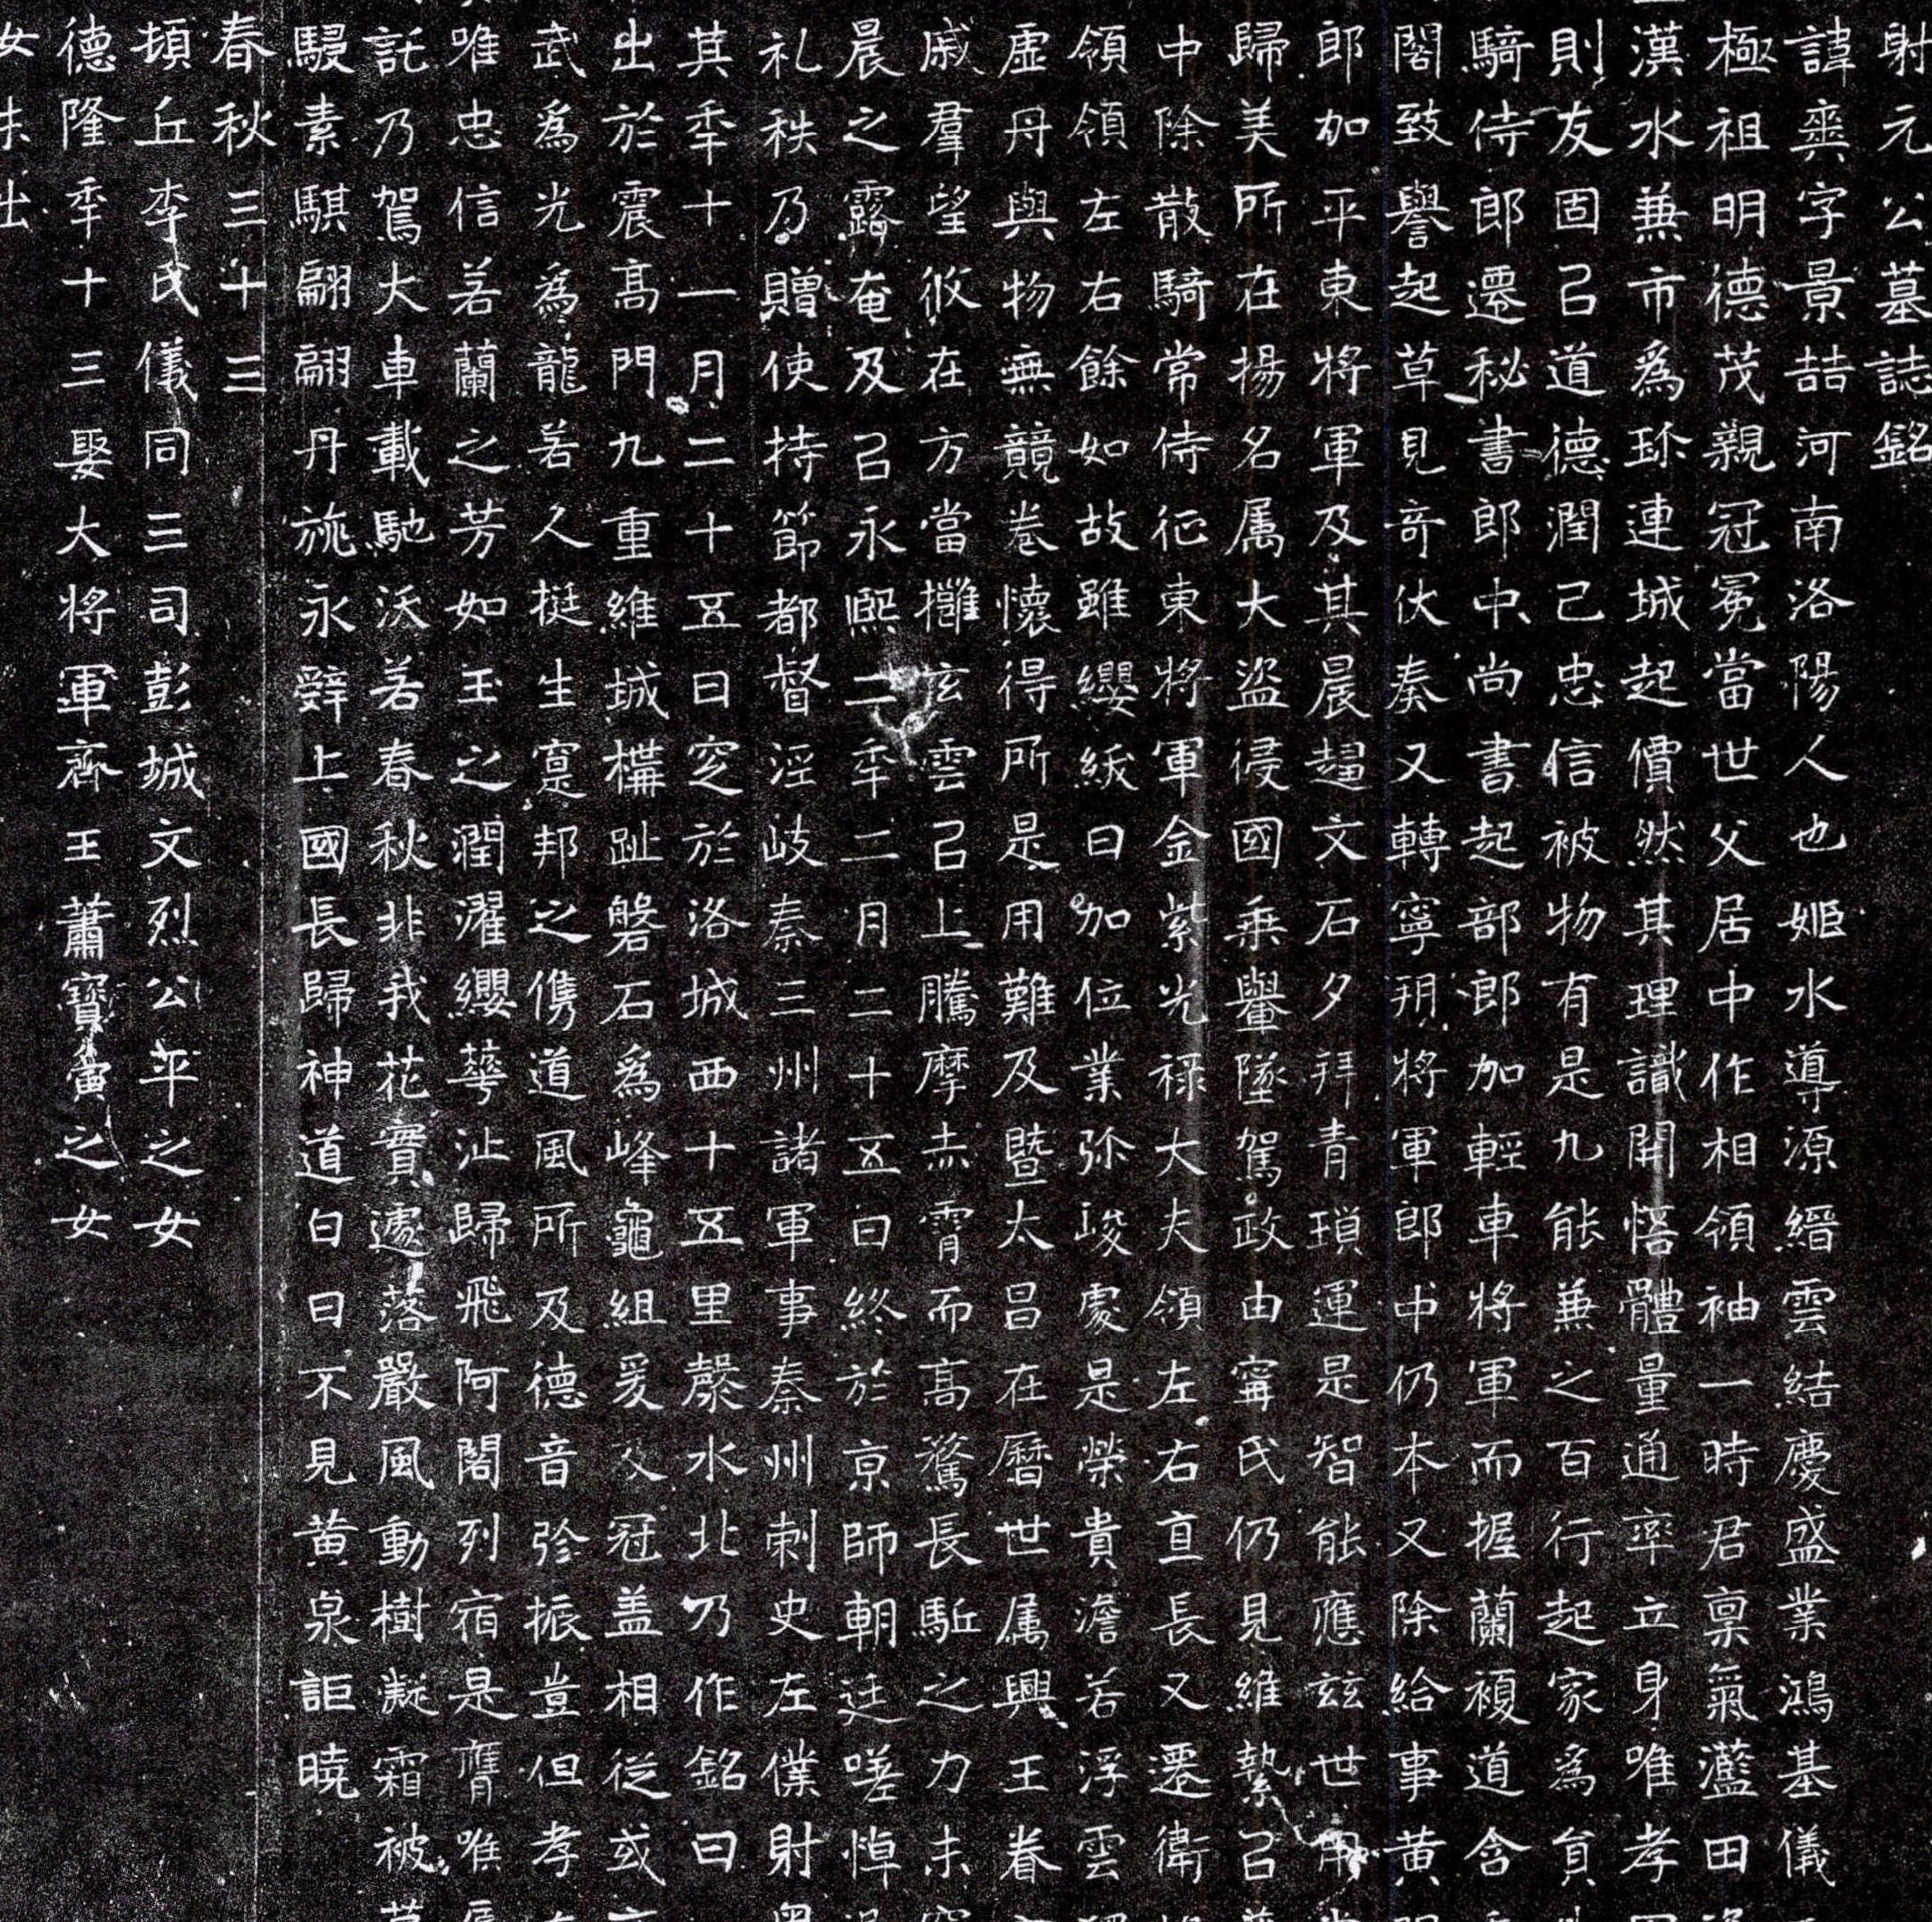 射元公墓誌銘
諱爽字景喆河南洛陽人也姬水導源縉雲結慶盛業鴻基儀
極祖明德茂親冠冕當世父居中作相領袖一時君稟氣灆田
漢水兼市爲珎連城起價然其理識開悟體量通率立身唯孝
則友固己道德潤己忠信被物有是九能兼之百行起家爲員
騎侍郎遷秘書郎中尚書起部郎加輕車將軍而握蘭複道含
閣致譽起草見奇伏奏又轉寧朔將軍郎中仍本又除給事黃
郎加平東將軍及其晨趨文石夕拜青瑣運是智能應兹世用
歸美所在揚名属大盜侵國乘轝墜駕政由寗氏仍見維縶㠯
中除散騎常侍征東將軍金紫光祿大夫領左右直長又遷衛
領領左右餘如故雖纓紱日加位業弥峻處是榮貴澹若浮雲
虛舟與物無競卷懷得所是用難及暨太昌在曆世属興王眷
戚羣望攸在方當攡玄雲㠯上騰摩赤霄而高騖長駈之力未
晨之露奄及㠯永熙二年二月二十五日終於京師朝廷嗟悼
礼秩乃贈使持節都督涇岐秦三州諸軍事秦州刺史左僕射
其年十一月二十五日窆於洛城西十五里漦水北乃作銘曰
出於震高門九重維城構趾磐石爲峰龜組爰及冠盖相從或
武爲光爲龍若人挺生寔邦之儁道風所及德音弥振豈但孝
唯忠信若蘭之芳如玉之潤濯纓華沚歸飛阿閣列宿是膺喉
託乃駕大車載馳沃若春秋非我花實遽落嚴風動樹凝霜被
駸素騏翩翩丹旐永辭上國長歸神道白日不見黃泉詎曉
春秋三十三
頓丘李氏儀同三司彭城文烈公平之女
德隆年十三娶大將軍齊王蕭寶夤之女